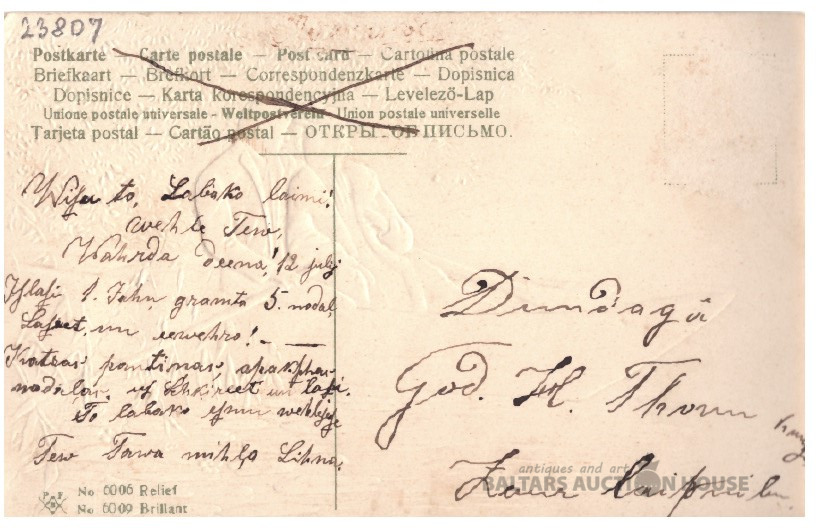 23807
Postkarte — Carte postale — Post card — Cartolina postale
Briefkaart — Brefkort — Correspondenzkarte — Dopisnica
Dopisnice — Karta korespondencyjna — Levelező-Lap
Unione postale universale - Weltpostverein - Union postale universelle
Tarjeta postal — Cartão postal — ОТКРЫТОЕ ПИСЬМО.
Wisu to, Labako laimi!
wehle Tew,
Wahrda deenā! 12 julij
Islasi 1. Jahn, gramta 5. nodaļ,
Laseet, un eewehro! —
Katras pantinas apakschas
nodalas, un lasi.
To labako wehlejas
Tew Tawa mihļa
Dundagā
God. H. Thom
Zaur
No 6006 Relief
No 6009 Brillant
antiques and art
BALTARS AUCTION HOUSE